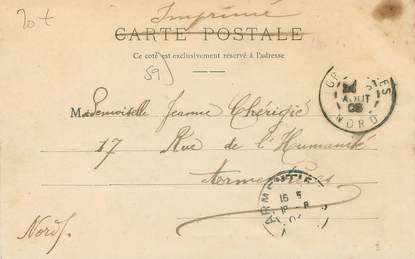 Imprimé
20 f
CARTE POSTALE
Ce côté est exclusivement réservé à l'adresse
59
Mademoiselle Jeanne Chérigié
17 Rue de l'Humanité
Armentières
Nord
AOUT
NORD
ARMENTI
16 5